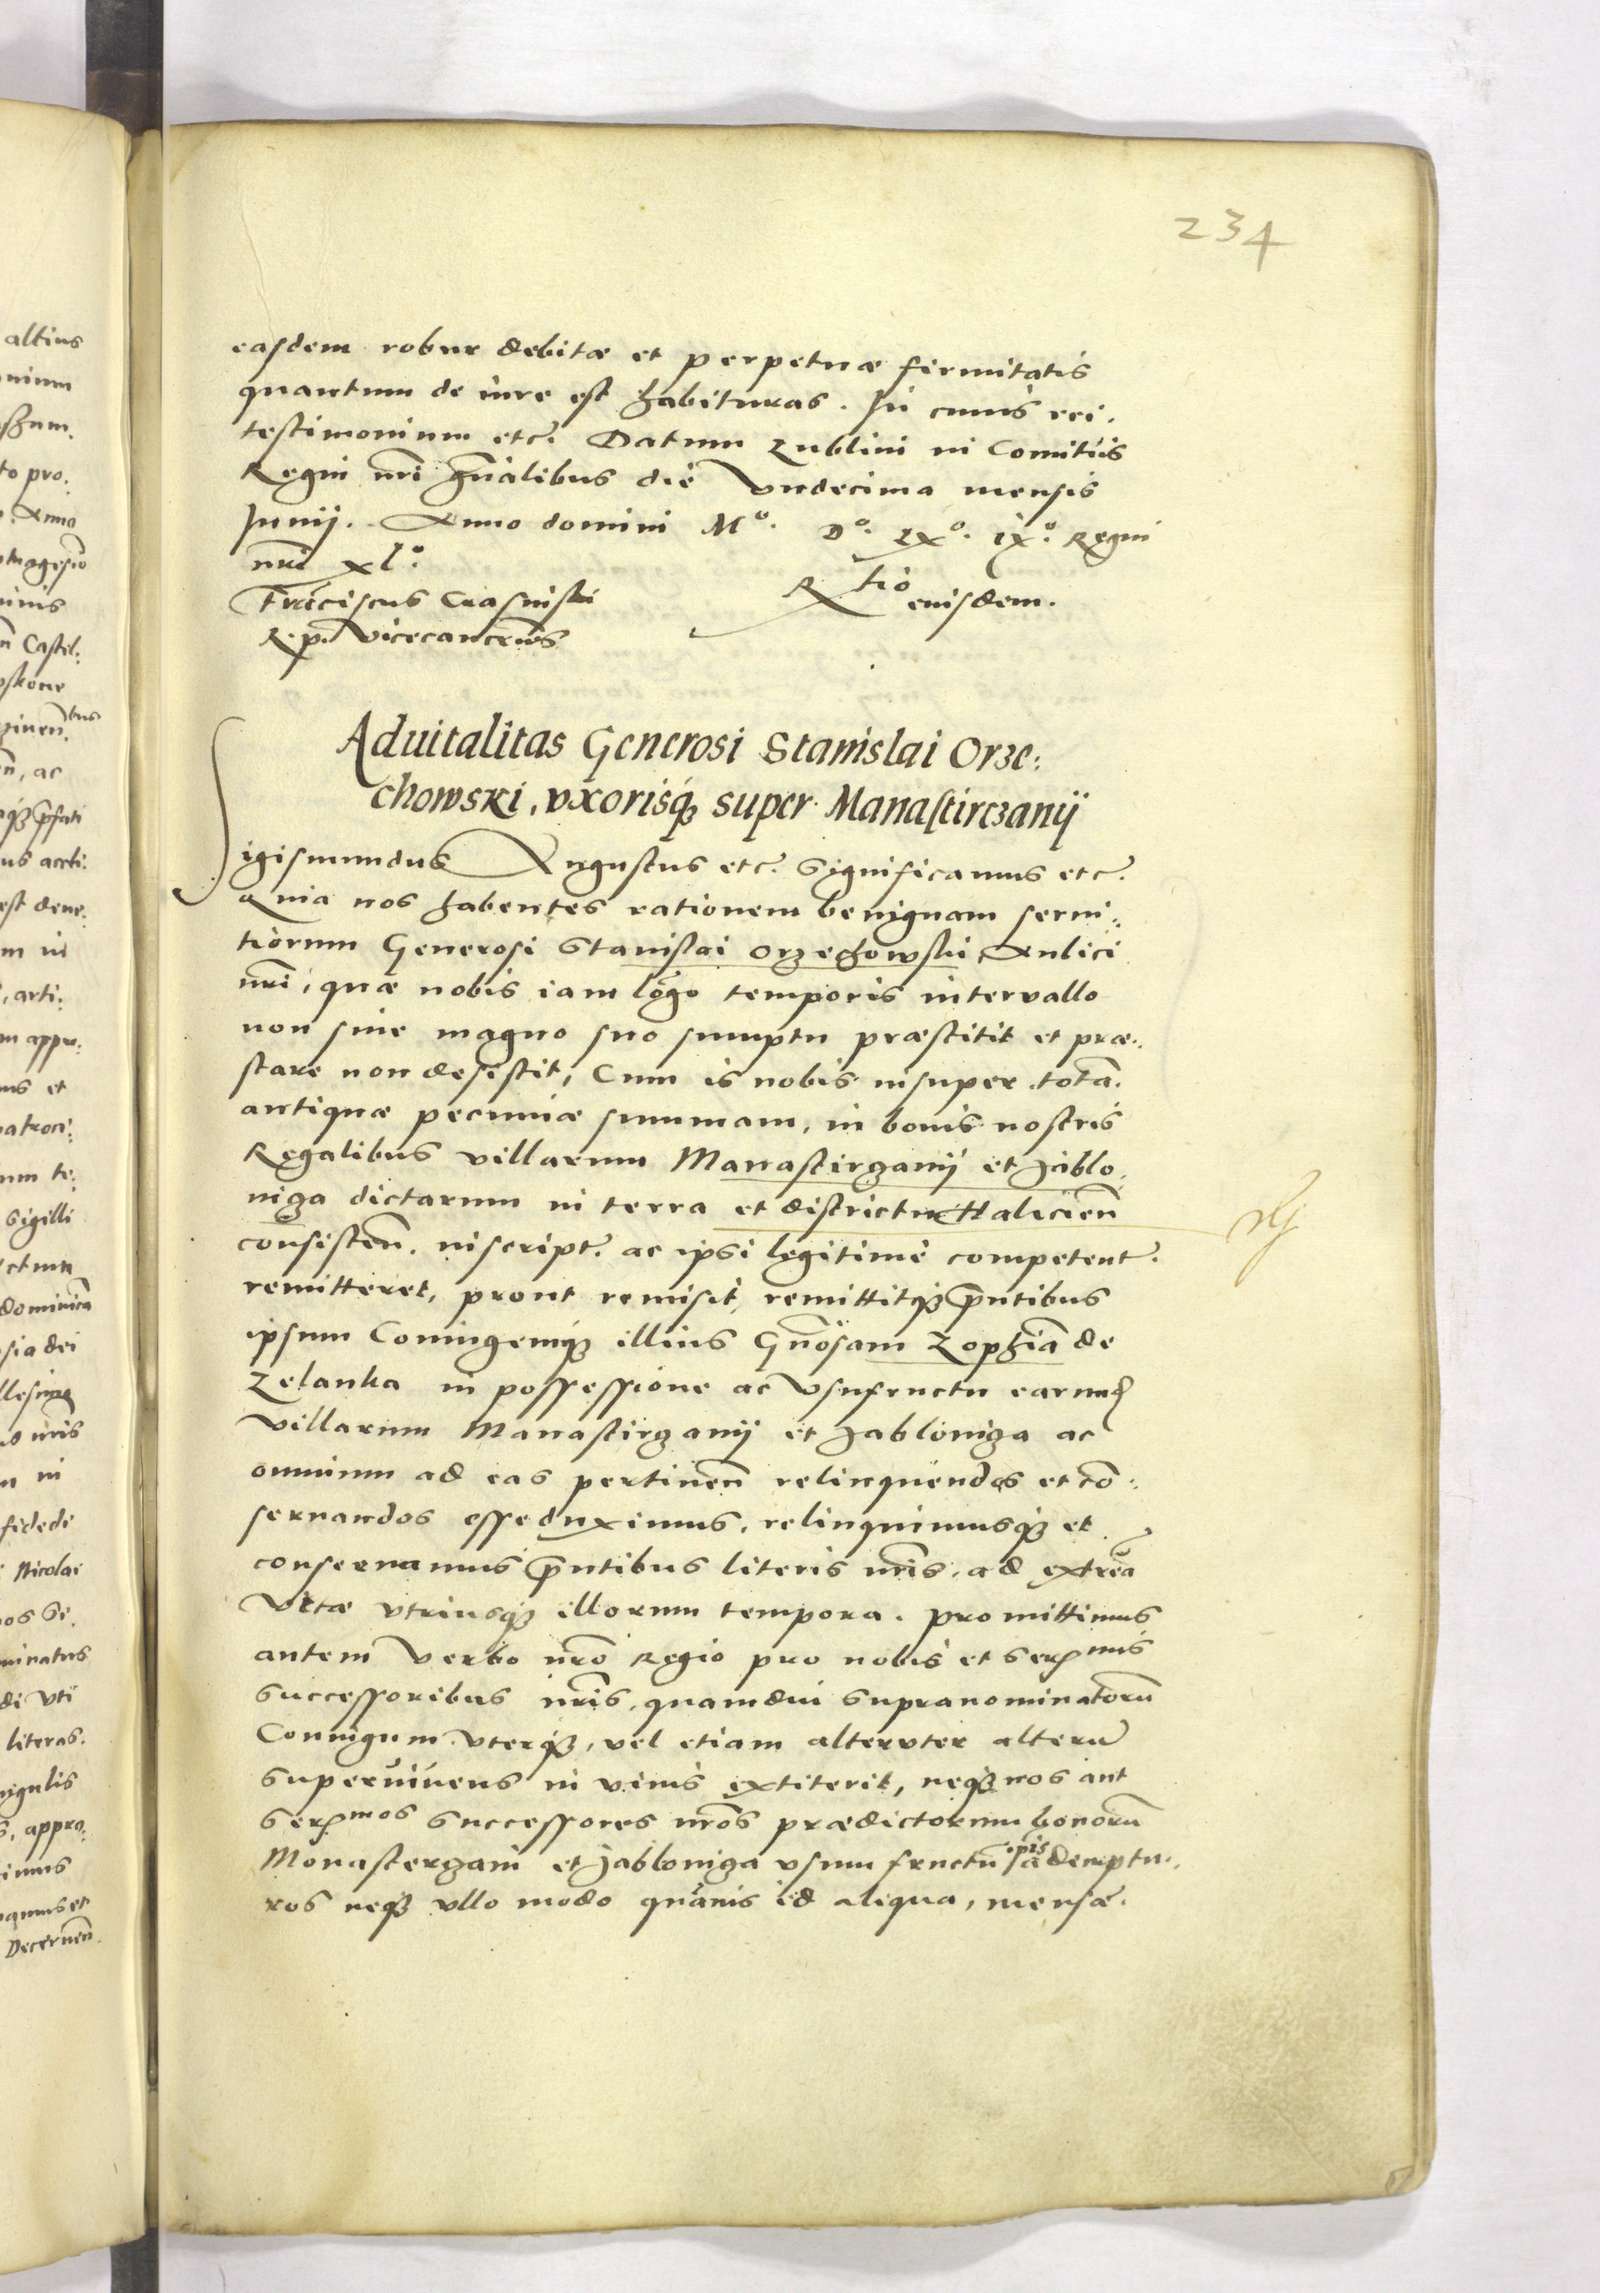 234
easdem robur debitæ et perpetuæ firmitatis
quantum de iure est habituras. In cuius rei.
testimonium etc. Datum Lublini in Comitiis
Regni nri gñalibus die Vndecima mensis
Junij. Anno domini Mº. Dº. LXº. IXº. Regni
nri XLº.
Frãciscus Crasniski
R. p. Vicecancell̃us
Rtio eiusdem.
Aduitalitas Generosi Stanislai Orze:
chowski, vxorisq3 super Manastirczanij
Sigismundus Augustus etc. Significamus etc.
Quia nos habentes rationem benignam serui:
tiorum Generosi Stanislai Orzechowski Aulici
nri, quæ nobis iam lõgo temporis interuallo
non sine magno suo sumptu præstitit et præ:
stare non desistit, Cum is nobis insuper totã.
antiquæ pecuniæ summam, in bonis nostris
Regalibus villarum Manastirzanij et Jablo,
niza dictarum in terra et districtu Halicien̄
consisten̄. inscript. ac ipsi legitime competent.
remitteret, prout remisit, remittitq3 p̃ntibus
ipsum Coniugemq3 illius Gñosam Zophiã de
Zelanka in possessione ac Vsufructu earund
Villarum Manastirzanij et Jabloniza ac
omnium ad eas pertinen̄ relinquendos et cõ:
seruandos esse duximus, relinquimusq3 et
conseruamus p̃ntibus literis nris, ad extrẽa
Vitæ vtriusq3 illorum tempora. Promittimus
autem Verbo nro Regio pro nobis et Sermis
Successoribus nris, quamdiu supranominatorũ
Coniugum vterq3, vel etiam alteruter alterũ
superuiuens in viuis extiterit, neq3 nos aut
Sermos Successores nros prædictorum bonorũ
Monasterzani et Jabloniza vsum fructũ ipis ademptu:,
ros neq3 vllo modo quãuis id aliqua, mensæ.